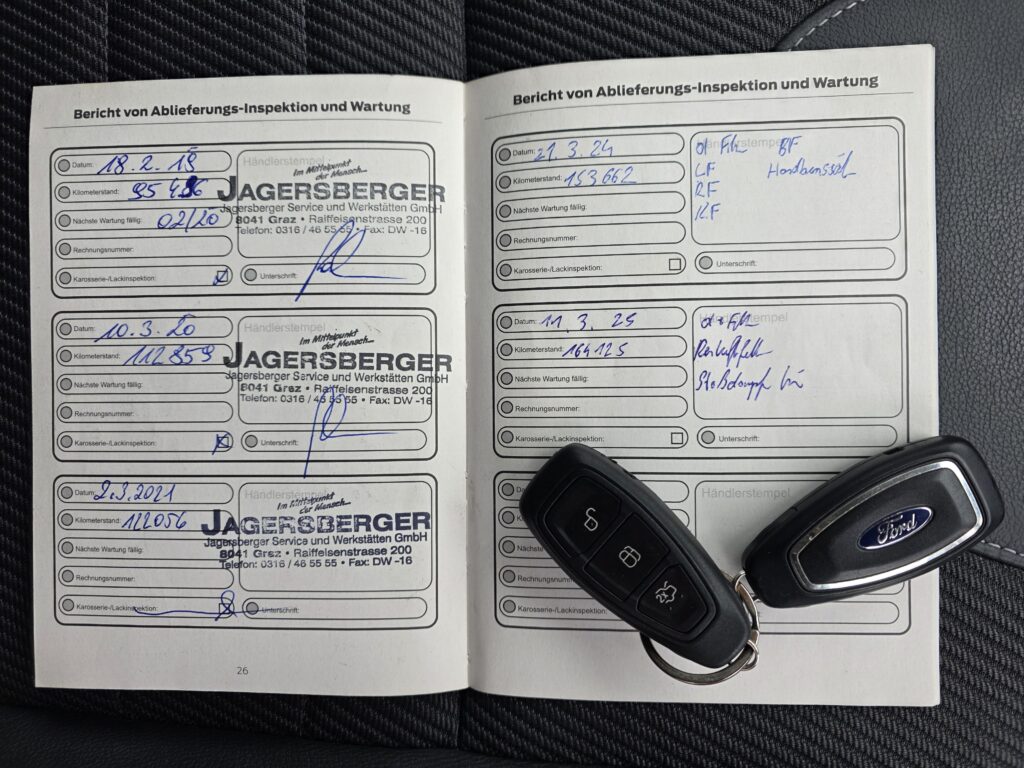 Bericht von Ablieferungs-Inspektion und Wartung
Datum: 18.2.19
Händlerstempel
Kilometerstand: 95 486
Im Mittelpunkt
der Mensch...
JAGERSBERGER
Jagersberger Service und Werkstätten GmbH
8041 Graz • Raiffeisenstrasse 200
Telefon: 0316 / 46 55 55 • Fax: DW -16
Nächste Wartung fällig: 02/20
Rechnungsnummer:
Karosserie-/Lackinspektion:
Unterschrift:
Datum: 10.3.20
Händlerstempel
Kilometerstand: 112859
Im Mittelpunkt
der Mensch...
JAGERSBERGER
Jagersberger Service und Werkstätten GmbH
8041 Graz • Raiffeisenstrasse 200
Telefon: 0316 / 46 55 55 • Fax: DW -16
Nächste Wartung fällig:
Rechnungsnummer:
Karosserie-/Lackinspektion:
Unterschrift:
Datum: 2.3.2021
Händlerstempel
Kilometerstand: 122056
Im Mittelpunkt
der Mensch...
JAGERSBERGER
Jagersberger Service und Werkstätten GmbH
8041 Graz • Raiffeisenstrasse 200
Telefon: 0316 / 46 55 55 • Fax: DW -16
Nächste Wartung fällig:
Rechnungsnummer:
Karosserie-/Lackinspektion:
Unterschrift:
26
Bericht von Ablieferungs-Inspektion und Wartung
Datum: 21.3.24
Kilometerstand: 153662
BF
LF
KF
Nächste Wartung fällig:
Rechnungsnummer:
Karosserie-/Lackinspektion:
Unterschrift:
Datum: 11.3.25
Händlerstempel
Kilometerstand: 164125
Nächste Wartung fällig:
Rechnungsnummer:
Karosserie-/Lackinspektion:
Unterschrift:
Händlerstempel
Nächste
Rechnungsnummer
Karosserie-/Lackinspektion:
Unterschrift:
2x
Ford